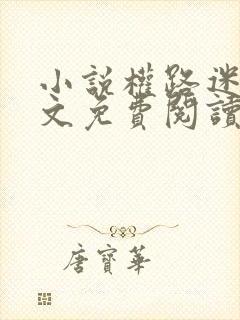 小說權路迷
文免費閱讀
唐寶華